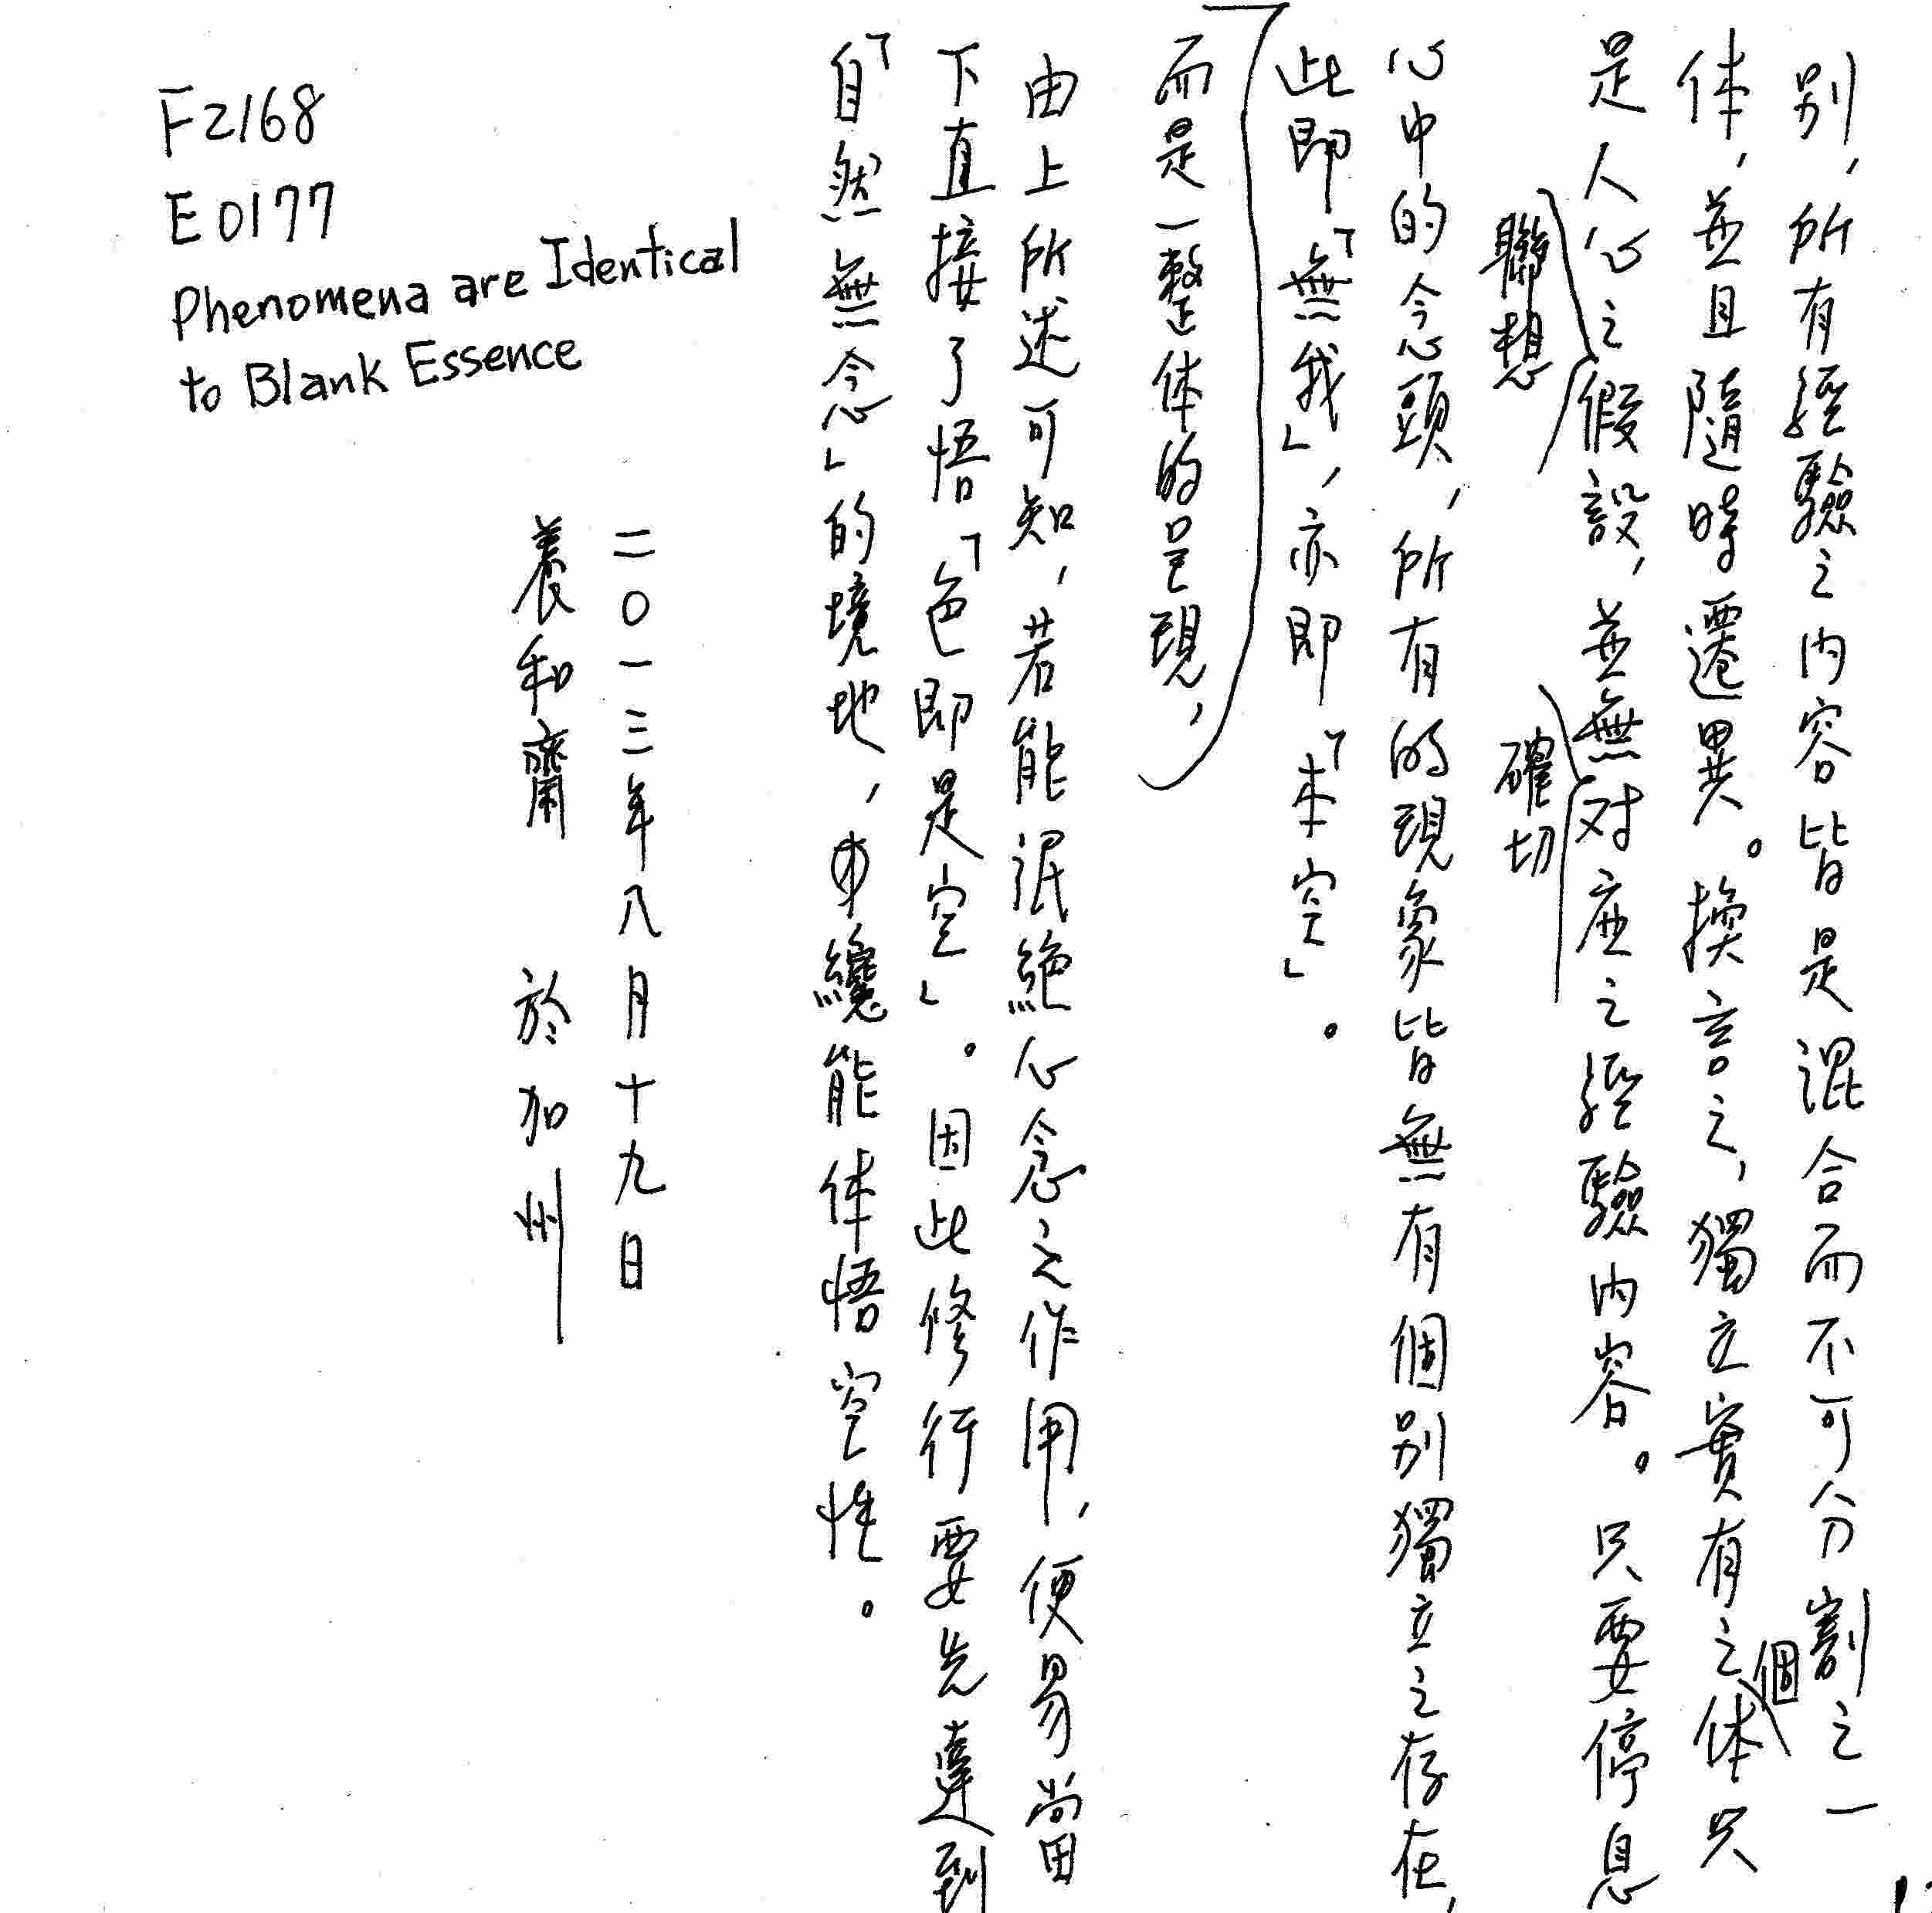 别，所有經驗之内容皆是混合而不可分割之一
体，並且隨時遷異。換言之，獨立實有之体只
個
是人心之假設，並無对应之經驗内容。只要停息
聯想
確切
心中的念頭，所有的現象皆無有個别獨立之存在，
此即「無我」，亦即「本空」。
而是一整体的呈現，
由上所述可知，若能泯絕心念之作用，便易當
下直接了悟「色即是空」。因此修行要先達到
「自然無念」的境地，纔能体悟空性。
二〇一三年八月十九日
養和齋 於加州
F2168
E0177
Phenomena are Identical
to Blank Essence